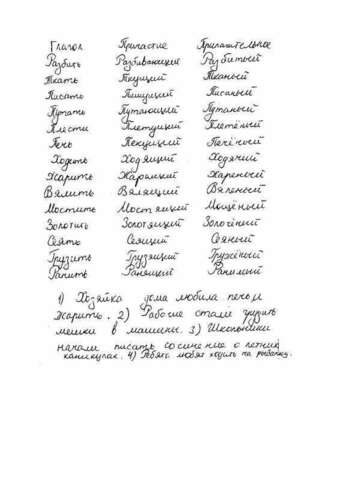 Глагол Причастие Прилагательное
Разбить Разбивающий Разбитый
Ткать Ткущий Тканый
Писать Пишущий Писаный
Путать Путающий Путаный
Плести Плетущий Плетёный
Печь Пекущий Печёный
Ходить Ходящий Ходячий
Жарить Жарящий Жареный
Вялить Вялящий Вяленый
Мостить Мостящий Мощёный
Золотить Золотящий Золочёный
Сеять Сеящий Сеяный
Грузить Грузящий Гружёный
Ранить Ранящий Ранимый
1) Хозяйка дома любила печь и
жарить. 2) Рабочие стали грузить
мешки в машины. 3) Школьники
начали писать сочинение о летних
каникулах. 4) Ребята любят ходить на рыбалку.